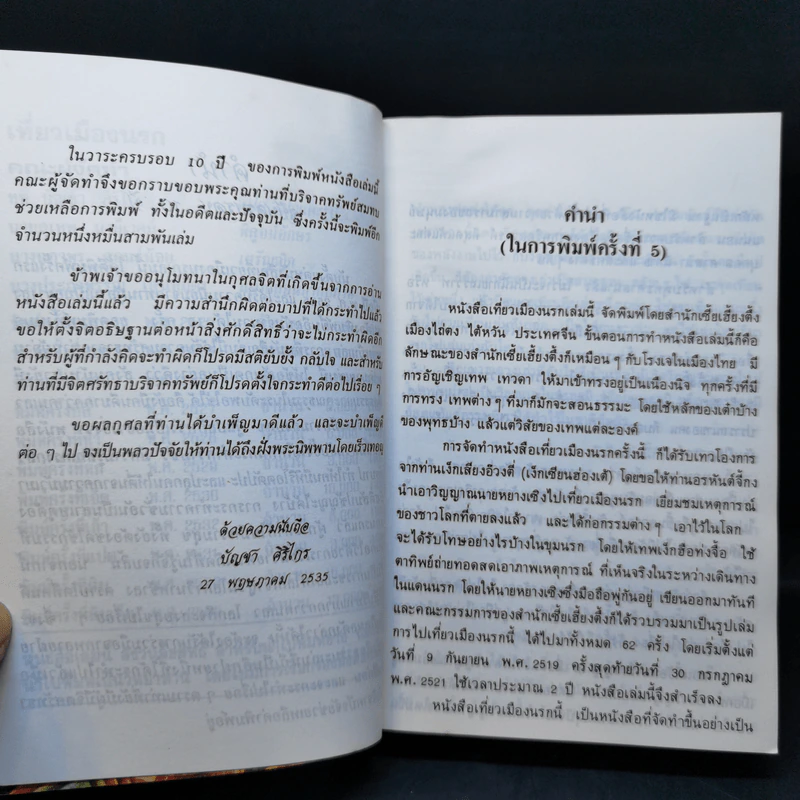 ในวาระครบรอบ 10 ปี ของการพิมพ์หนังสือเล่มนี้
คณะผู้จัดทำจึงขอกราบขอบพระคุณท่านที่บริจาคทรัพย์สมทบ
ช่วยเหลือการพิมพ์ ทั้งในอดีตและปัจจุบัน ซึ่งครั้งนี้จะพิมพ์อีก
จำนวนหนึ่งหมื่นสามพันเล่ม
ข้าพเจ้าขออนุโมทนาในกุศลจิตที่เกิดขึ้นจากการอ่าน
หนังสือเล่มนี้แล้ว มีความสำนึกผิดต่อบาปที่ได้กระทำไปแล้ว
ขอให้ตั้งจิตอธิษฐานต่อหน้าสิ่งศักดิ์สิทธิ์ว่าจะไม่กระทำผิดอีก
สำหรับผู้ที่กำลังคิดจะทำผิดก็โปรดมีสติยับยั้ง กลับใจ และสำหรับ
ท่านที่มีจิตศรัทธาบริจาคทรัพย์ก็โปรดตั้งใจกระทำดีต่อไปเรื่อย ๆ
ขอผลกุศลที่ท่านได้บำเพ็ญมาดีแล้ว และจะบำเพ็ญดี
ต่อ ๆ ไป จงเป็นพลวปัจจัยให้ท่านได้ถึงฝั่งพระนิพพานโดยเร็วเทอญ
ด้วยความนับถือ
บัญชา ศิริไกร
27 พฤษภาคม 2535
คำนำ
(ในการพิมพ์ครั้งที่ 5)
หนังสือเที่ยวเมืองนรกเล่มนี้ จัดพิมพ์โดยสำนักเซี้ยเฮี้ยงตึ้ง
เมืองไถ่ตง ไต้หวัน ประเทศจีน ขั้นตอนการทำหนังสือเล่มนี้ก็คือ
ลักษณะของสำนักเซี้ยเฮี้ยงตึ้งก็เหมือนๆ กับโรงเจในเมืองไทย มี
การอัญเชิญเทพ เทวดา ให้มาเข้าทรงอยู่เป็นเนืองนิจ ทุกครั้งที่มี
การทรง เทพต่างๆ ที่มาก็มักจะสอนธรรมะ โดยใช้หลักของเต๋าบ้าง
ของพุทธบ้าง แล้วแต่วิสัยของเทพแต่ละองค์
การจัดทำหนังสือเที่ยวเมืองนรกครั้งนี้ ก็ได้รับเทวโองการ
จากท่านเง็กเสียงอ๊วงตี่ (เง็กเซียนฮ่องเต้) โดยขอให้ท่านอรหันต์จี้กง
นำเอาวิญญาณนายหยางเซิงไปเที่ยวเมืองนรก เยี่ยมชมเหตุการณ์
ของชาวโลกที่ตายลงแล้ว และได้ก่อกรรมต่างๆ เอาไว้ในโลก
จะได้รับโทษอย่างไรบ้างในขุมนรก โดยให้เทพเง็กฮือท่งจื้อ ใช้
ตาทิพย์ถ่ายทอดสดเอาภาพเหตุการณ์ ที่เห็นจริงในระหว่างเดินทาง
ในแดนนรก โดยให้นายหยางเซิงซึ่งมือถือพู่กันอยู่ เขียนออกมาทันที
และคณะกรรมการของสำนักเซี้ยเฮี้ยงตึ้งก็ได้รวบรวมมาเป็นรูปเล่ม
การไปเที่ยวเมืองนรกนี้ ได้ไปมาทั้งหมด 62 ครั้ง โดยเริ่มตั้งแต่
วันที่ 9 กันยายน พ.ศ. 2519 ครั้งสุดท้ายวันที่ 30 กรกฎาคม
พ.ศ. 2521 ใช้เวลาประมาณ 2 ปี หนังสือเล่มนี้จึงสำเร็จลง
หนังสือเที่ยวเมืองนรกนี้ เป็นหนังสือที่จัดทำขึ้นอย่างเป็น